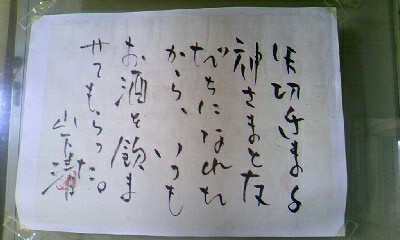 神さまと友
だちになれた
から、いつも
お酒を飲ま
せてもらった。
山下清